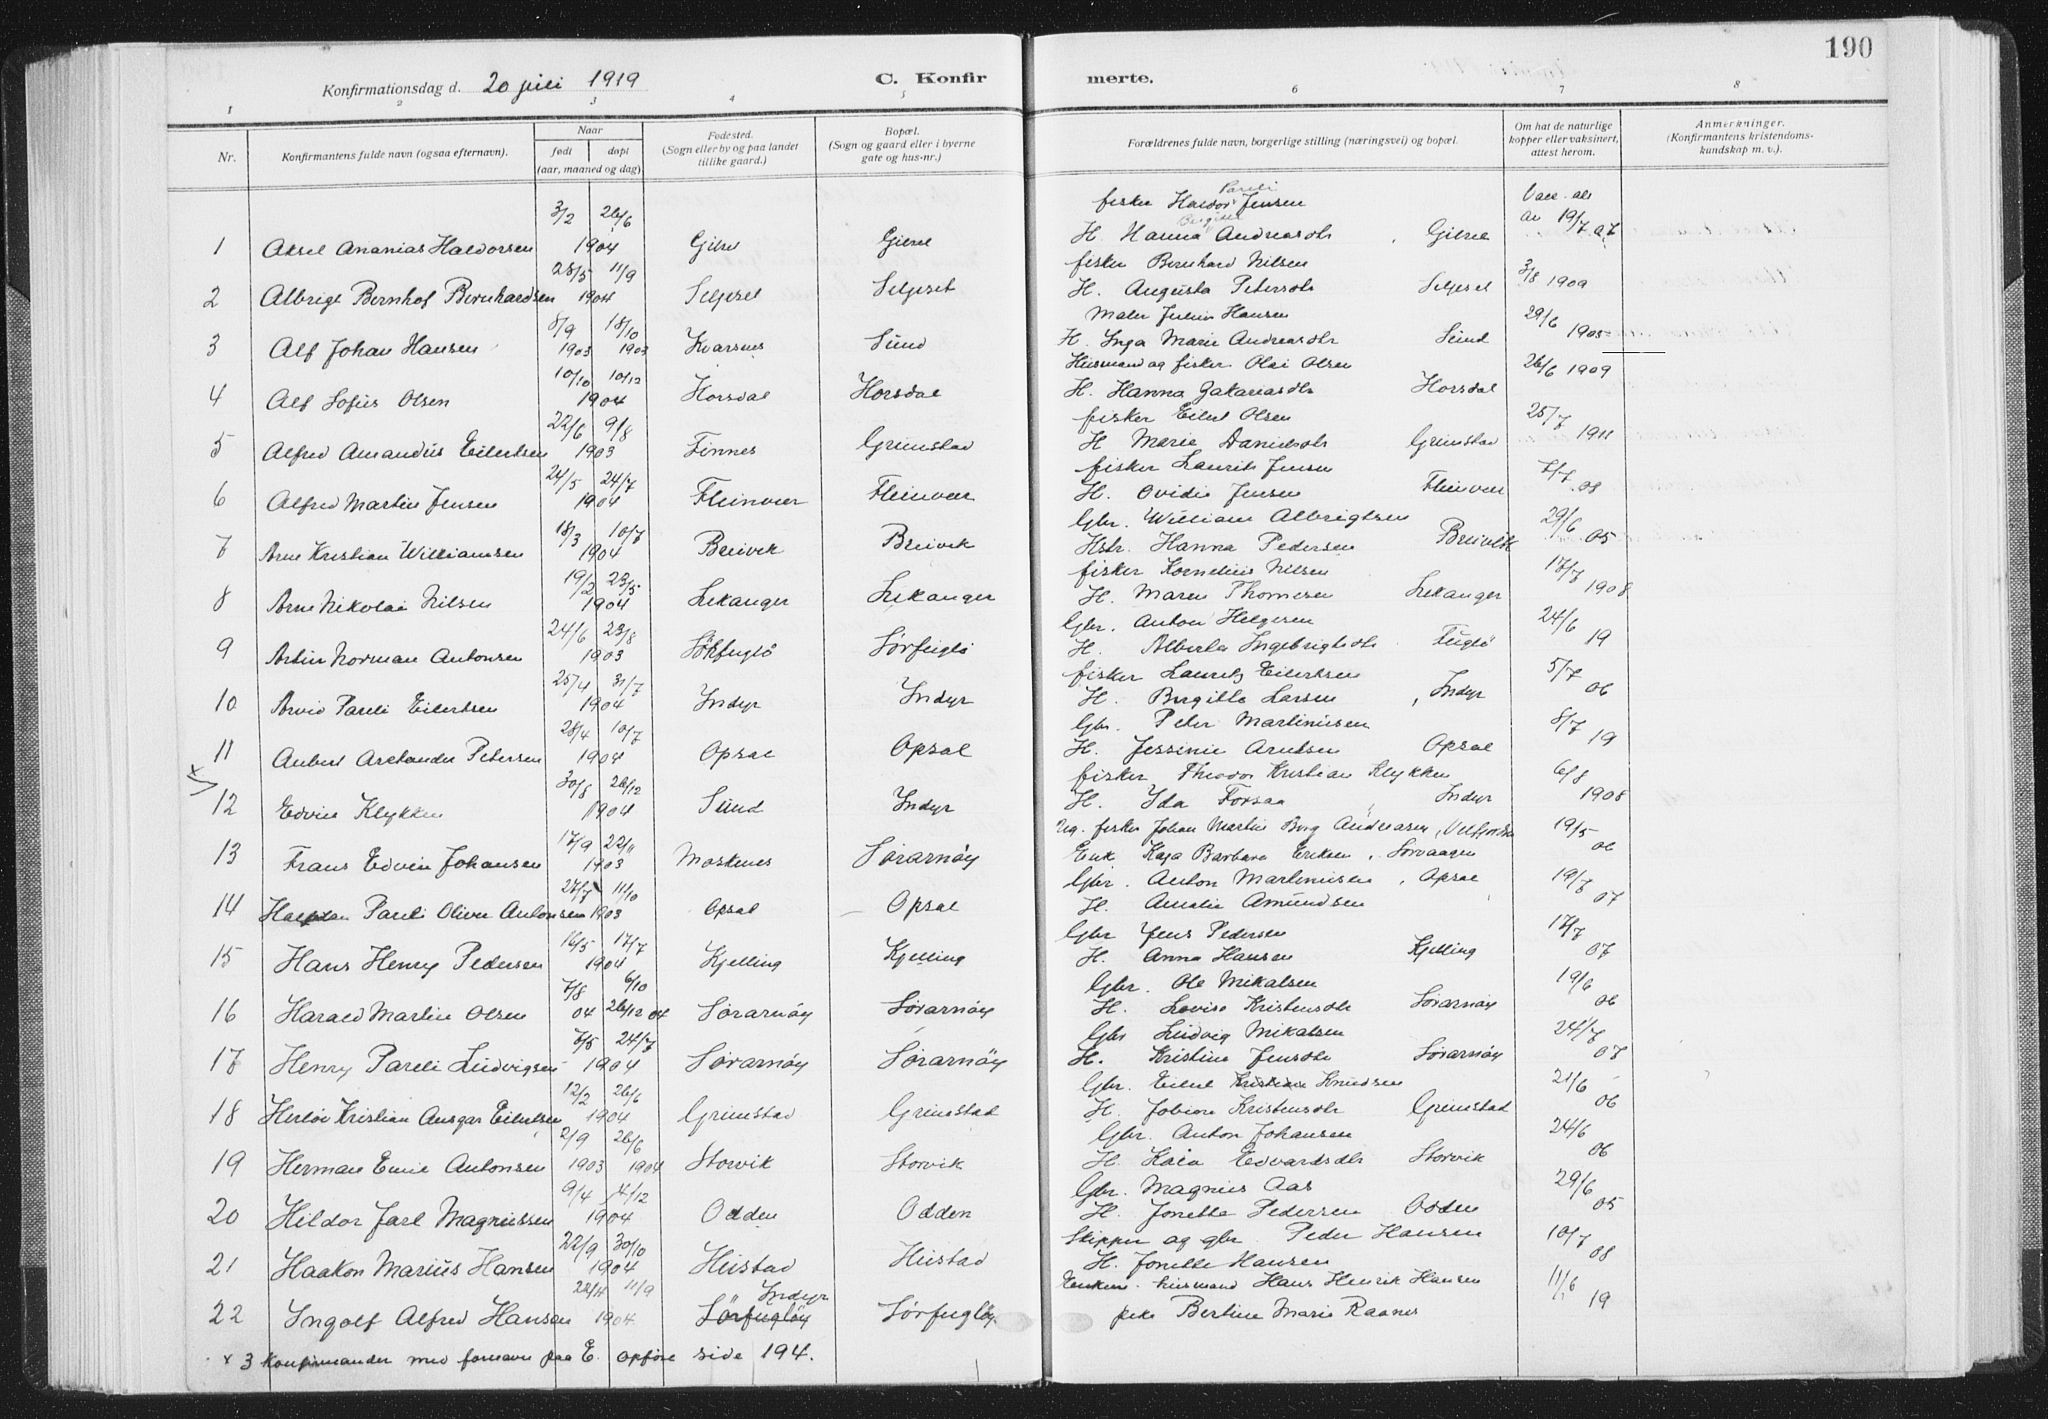 190
Konfirmationsdag d. 20 juli 1919
C. Konfirmerte.
1 2 3 4 5 6 7 8
Nr. Konfirmantens fulde navn (ogsaa efternavn). Naar født døpt (aar, maaned og dag). Fødested. (Sogn eller by og paa landet tillike gaard.) Bopæl. (Sogn og gaard eller i byerne gate og hus-nr.) Forældrenes fulde navn, borgerlige stilling (næringsvei) og bopæl. Om hat de naturlige kopper eller vaksinert, attest herom. Anmerkninger. (Konfirmantens kristendomskundskap m. v.).
Pareli
3/2 26/6 fisker Haldor Jensen Vacc. att.
Birgitte
1 Aksel Ananias Haldorsen 1904 Gilset Gilset H. Hanna Andreasdtr , Gilset av 19/7 07
28/5 11/9 fisker Bernhard Nilsen
2 Albrigt Bernhof Bernhardsen 1904 Seljeset Seljeset H. Augusta Petersdtr Seljeset 3/8 1909
8/9 18/10 Maler Julius Hansen
3 Alf Johan Hansen 1903 1903 Kvarsnes Sund H. Inga Marie Andreasdtr Sund 29/6 1905
10/10 10/12 Husmand og fisker Olai Olsen
4 Alf Sofus Olsen 1904 Horsdal Horsdal H. Hanna Zakariasdtr Horsdal 26/6 1909
22/6 9/8 fisker Eilert Olsen
5 Alfred Amandus Eilertsen 1903 Finnes Grimstad H Marie Danielsdtr Grimstad 25/7 1911
24/5 24/7 fisker Laurits Jensen
6 Alfred Martin Jensen 1904 Fleinvær Fleinvær H. Ovidie Jensen Fleinvær 7/7 08
18/3 10/7 Gbr. William Albrigtsen
7 Arne Kristian Williamsen 1904 Breivik Breivik Hstr. Hanna Pedersen Breivik 29/6 05
19/2 23/5 fisker Kornelius Nilsen
8 Arne Nikolai Nilsen 1904 Lekanger Lekanger H. Maren Thomesen Lekanger 17/7 1908
24/6 23/8 Gbr. Anton Helgesen
9 Artur Norman Antonsen 1903 Sørfuglø Sørfuglø H. Alberta Ingebrigtsdtr Fuglø 24/6 19
25/4 31/7 fisker Lauritz Eilertsen
10 Arvid Pareli Eilertsen 1904 Indyr Indyr H. Birgitte Larsen , Indyr 5/7 06
28/4 10/7 Gbr. Peter Martinusen
11 Aubert Aretander Petersen 1904 Opsal Opsal H. Jessinie Arntsen Opsal 8/7 19
x
30/8 26/12 fisker Theodor Kristian Klykken
12 Edvin Klykken 1904 Sund Indyr H. Ida Forsaa , Indyr 6/8 1908
17/9 22/11 Ug. fisker Johan Martin Berg Andreasen, Velfjorden
13 Frans Edvin Johansen 1903 Moskenes Sørarnøy Enk Kaja Barbara Eriksen , Sørvaagen 19/5 06
27/7 11/10 Gbr. Anton Martinusen , Opsal
14 Halfdan Pareli Oliver Antonsen 1903 Opsal Opsal H. Amalie Amundsen 19/7 07
16/5 17/7 Gbr Jens Pedersen
15 Hans Henry Pedersen 1904 Kjelling Kjelling H. Anna Hansen Kjelling 17/7 07
7/8 6/10 Gbr. Ole Mikalsen
16 Harald Martin Olsen 04 26/12 04 Sørarnøy Sørarnøy H. Lovise Kristensdtr Sørarnøy 19/6 06
7/5 24/7 Gbr Ludvig Mikalsen
17 Henry Pareli Ludvigsen 1904 Sørarnøy Sørarnøy H. Kristine Jensdtr Sørarnøy 24/7 07
12/2 26/6 Gbr. Eilert Kristian Knudsen
18 Herløi Kristian Ansgar Eilertsen 1904 Grimstad Grimstad H. Jobine Kristensdtr Grimstad 21/6 06
2/9 26/6 Gbr. Anton Johansen
19 Herman Emil Antonsen 1903 1904 Storvik Storvik H. Kaia Edvardsdtr Storvik 24/6 06
9/4 4/12 Gbr. Magnus Aas
20 Hildor Jarl Magnussen 1904 Odden Odden H. Jonette Pedersen Odden 29/6 05
22/9 30/10 Skipper og gbr Peder Hansen
21 Haakon Marius Hansen 1904 Hustad Hustad H. Jonette Hansen 10/7 08
22/4 11/9 Indyr Enkem. husmand Hans Henrik Hansen
22 Ingolf Alfred Hansen 1904 Sørfugløy Sørfugløy pike Bertine Marie Raanes 11/6 19
x 3 Konfirmander med fornavn paa E. opføre side 194.